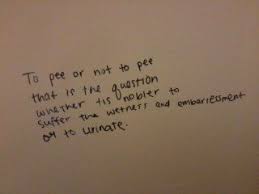 To pee or not to pee
that is the question
whether tis nobler to
suffer the wetness and embarressment
or to urinate.